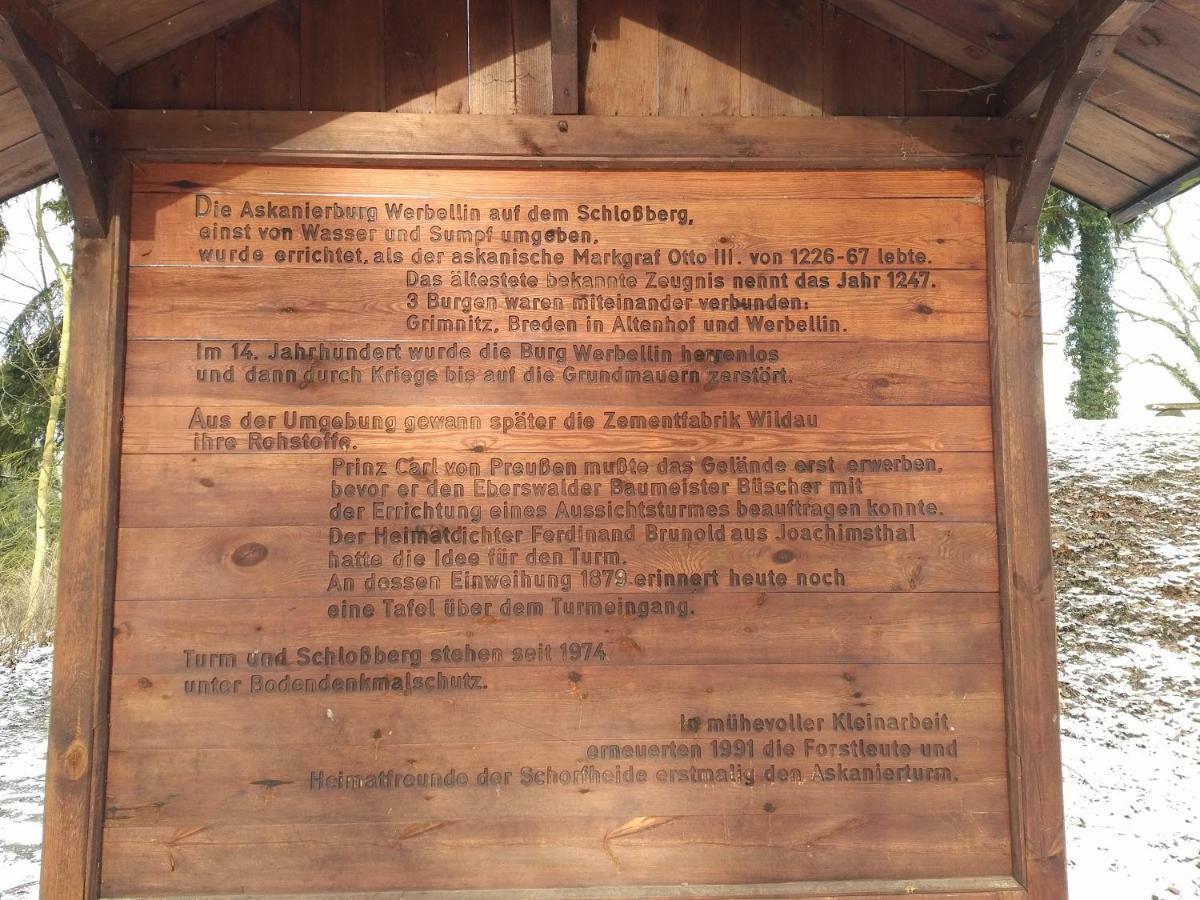 Die Askanierburg Werbellin auf dem Schloßberg,
einst von Wasser und Sumpf umgeben,
wurde errichtet, als der askanische Markgraf Otto III. von 1226-67 lebte.
Das ältestete bekannte Zeugnis nennt das Jahr 1247.
3 Burgen waren miteinander verbunden:
Grimnitz, Breden in Altenhof und Werbellin.
Im 14. Jahrhundert wurde die Burg Werbellin herrenlos
und dann durch Kriege bis auf die Grundmauern zerstört.
Aus der Umgebung gewann später die Zementfabrik Wildau
ihre Rohstoffe.
Prinz Carl von Preußen mußte das Gelände erst erwerben,
bevor er den Eberswalder Baumeister Büscher mit
der Errichtung eines Aussichtsturmes beauftragen konnte.
Der Heimatdichter Ferdinand Brunold aus Joachimsthal
hatte die Idee für den Turm.
An dessen Einweihung 1879 erinnert heute noch
eine Tafel über dem Turmeingang.
Turm und Schloßberg stehen seit 1974
unter Bodendenkmalschutz.
In mühevoller Kleinarbeit
erneuerten 1991 die Forstleute und
Heimatfreunde der Schorfheide erstmalig den Askanierturm.